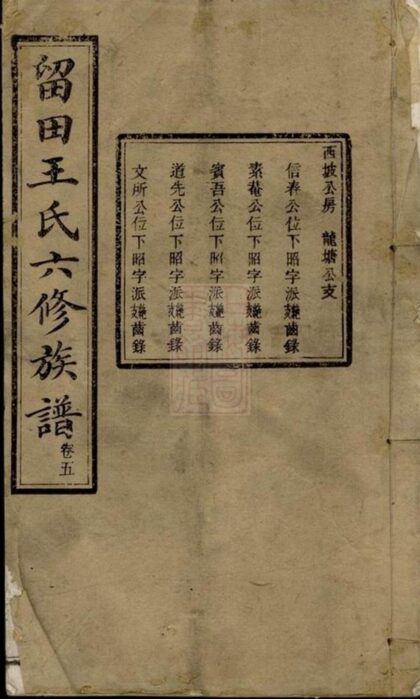 留田王氏六修族譜卷五
西坡公房 龍塘公支
信春公位下昭字派齒錄
素菴公位下昭字派齒錄
賓吾公位下昭字派齒錄
道先公位下昭字派齒錄
文所公位下昭字派齒錄